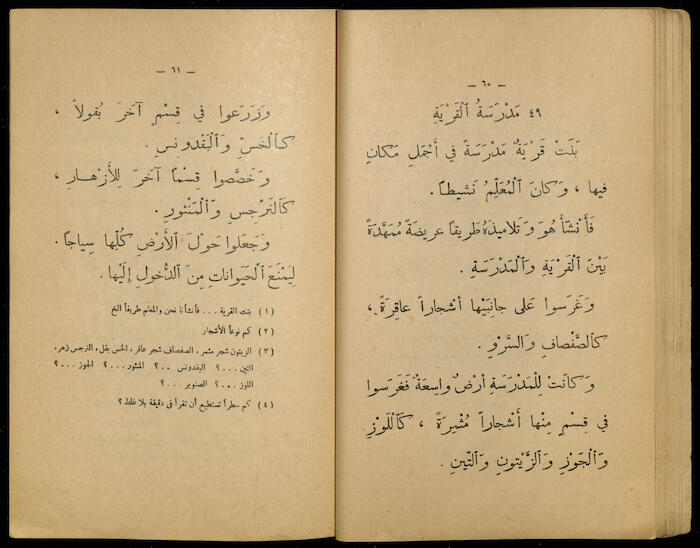 — ٦٠ —
٤٩ مَدْرَسَةُ القَرْيَةِ
بَنَتْ قَرْيَةٌ مَدْرَسَةً في أَجْمَلِ مَكانٍ
فيها ، وَكانَ الْمُعَلِّمُ نَشيطاً .
فَأَنْشَأَ هُوَ وَتَلاميذُهُ طَريقاً عَريضَةً مُمَهَّدَةً
بَيْنَ القَرْيَةِ وَالْمَدْرَسَةِ .
وَغَرَسوا عَلى جانِبَيْها أَشْجاراً عاقِرَةً ،
كَالصَّفْصافِ وَالسَّرْوِ .
وَكانَتْ لِلْمَدْرَسَةِ أَرْضٌ واسِعَةٌ فَغَرَسوا
في قِسْمٍ مِنْها أَشْجاراً مُثْمِرَةً ، كَاللَّوْزِ
وَالْجَوْزِ وَالزَّيْتونِ وَالتّينِ .
— ٦١ —
وَزَرَعوا في قِسْمٍ آخَرَ بُقولاً ،
كَالْخَسِّ وَالْبَقْدونِسِ .
وَخَصَّصوا قِسْماً آخَرَ لِلْأَزْهارِ ،
كَالنَّرْجِسِ وَالْمَنْثورِ .
وَجَعَلوا حَوْلَ الْأَرْضِ كُلِّها سِياجاً .
لِيَمْنَعَ الْحَيواناتِ مِنَ الدُّخولِ إِلَيْها .
(١) بنت القرية ... فأنشأنا نحن والمعلم طريقاً الخ
(٢) كم نوعاً الأشجار
(٣) الزيتون شجر مثمر . الصفصاف شجر عاقر . الخس بقل . النرجس زهر .
التين ...؟ البقدونس ..؟ المنثور ...؟ الجوز ...؟
اللوز ...؟ الصنوبر ...؟
(٤) كم سطراً تستطيع أن تقرأ في دقيقة بلا غلط ؟